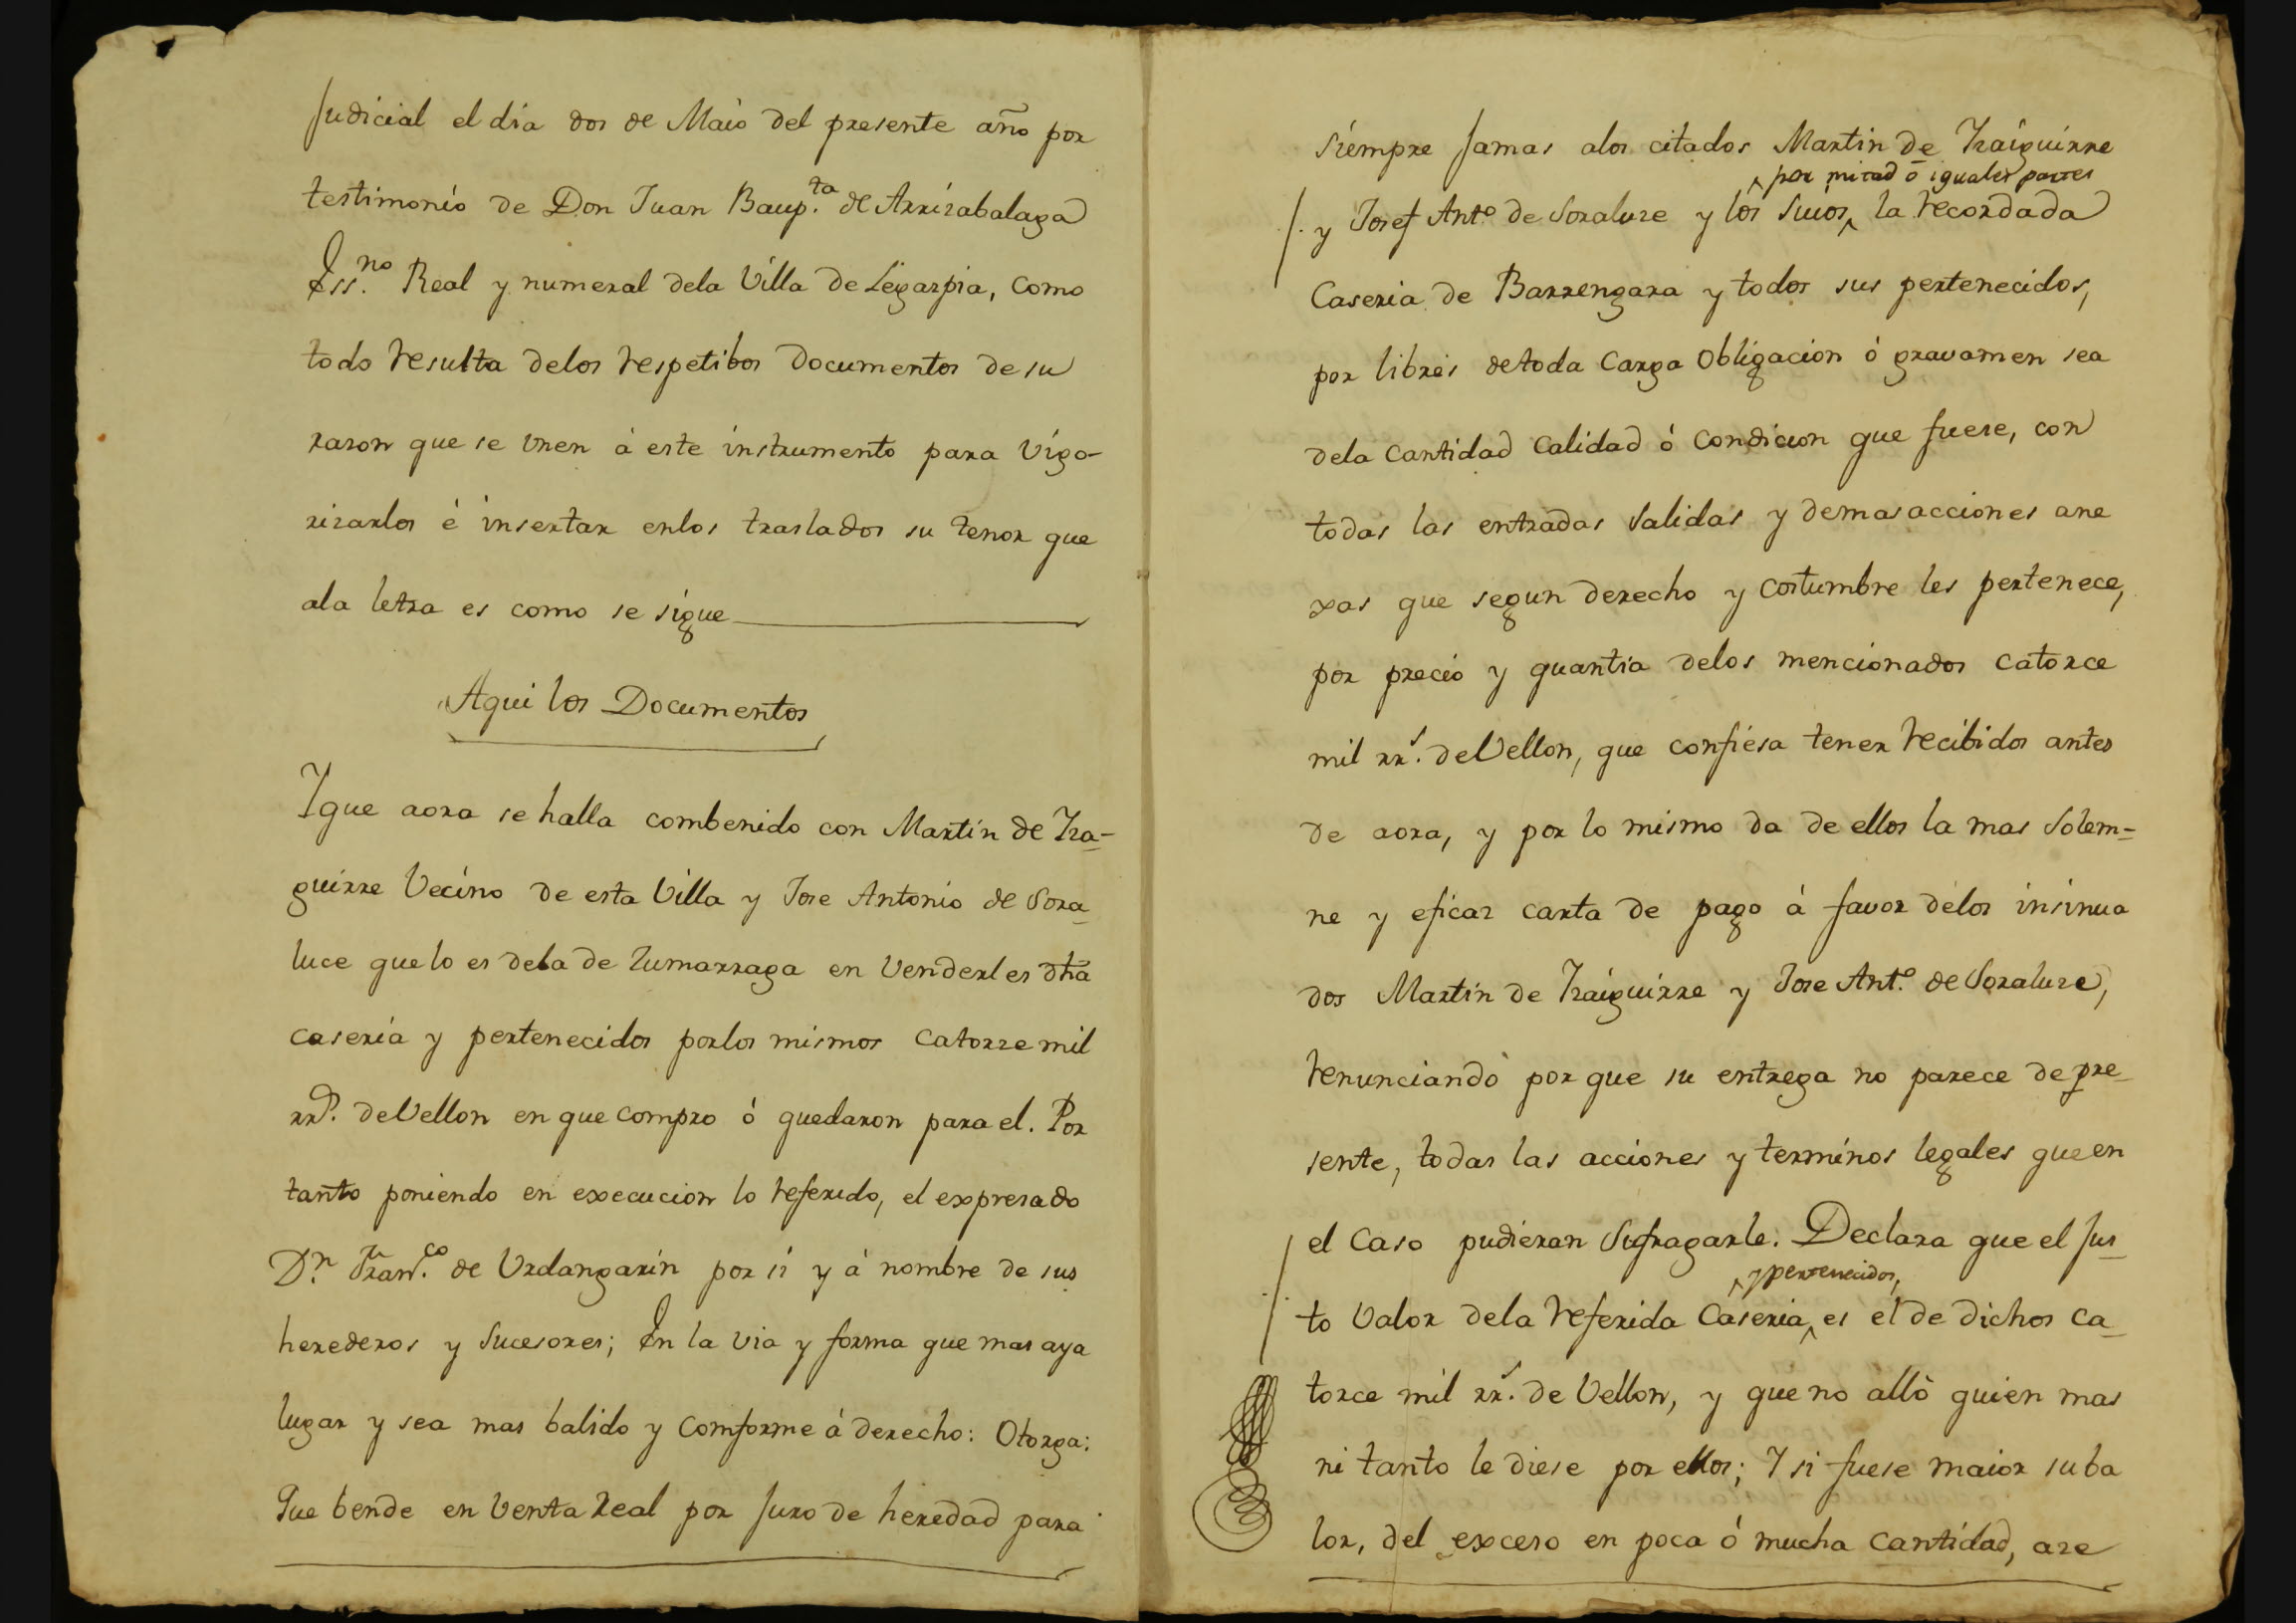 Judicial el dia dos de Maio del presente año por
testimonio de Don Juan Baup.ta de Arrizabalaga
Ess.no Real y numeral dela Villa de Legarpia, como
todo resulta delos respetibos Documentos de su
razon que se vnen à este instrumento para vigo-
rizarlos è insertar enlos traslados su tenor que
ala letra es como se sigue
Aqui los Documentos
Y que aora se halla combenido con Martin de Yra-
guirre Vecino de esta Villa y Jose Antonio de Sora-
luce que lo es dela de Zumarraga en Venderles dha
caseria y pertenecidos porlos mismos catorze mil
rr.s de Vellon en que compro ò quedaron para el. Por
tanto poniendo en execucion lo referido, el expresado
D.n Fran.co de Vrdangarin por si y à nombre de sus
herederos y Sucesores; En la via y forma que mas aya
lugar y sea mas balido y comforme à derecho: Otorga:
Que bende en Venta Real por Juro de heredad para
siempre Jamas alos citados Martin de Yraiguirre
por mitad ò iguales partes
y Josef Ant.o de Soraluze y los suios, la recordada
Caseria de Barrengara y todos sus pertenecidos,
por libres de toda Carga Obligacion ò gravamen sea
dela Cantidad Calidad ò Condicion que fuere, con
todas las entradas Salidas y demas acciones ane
xas que segun derecho y costumbre les pertenece,
por precio y quantia delos mencionados catorce
mil rr.s de Vellon, que confiesa tener recibidos antes
de aora, y por lo mismo da de ellos la mas Solem-
ne y eficaz carta de pago à favor delos insinua
dos Martin de Yraiguirre y Jose Ant.o de Soraluze,
renunciando por que su entrega no parece de pre-
sente, todas las acciones y terminos legales que en
el Caso pudieran Sufragarle. Declara que el Jus-
y pertenecidos,
to Valor dela referida Caseria, es el de dichos Ca-
torce mil rr.s de Vellon, y que no allò quien mas
ni tanto le diese por ellos; Y si fuese maior su ba
lor, del exceso en poca ò mucha Cantidad, aze